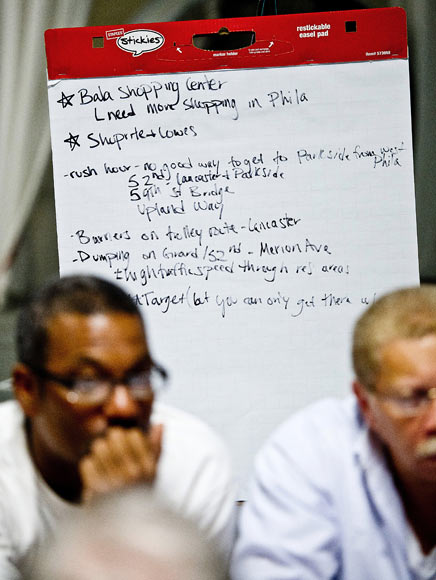 STAPLES
stickies
marker holder
restickable
easel pad
☆ Bala Shopping Center
need more shopping in Phila
☆ Shoprite + Lowes
-rush hour - no good way to get to Parkside from West Phila
52nd, Lancaster + Parkside
59th St Bridge
Upland Way
-Barriers on trolley route - Lancaster
-Dumping on Girard/52nd - Merion Ave
+ high traffic speed through res areas
Target (but you can only get there